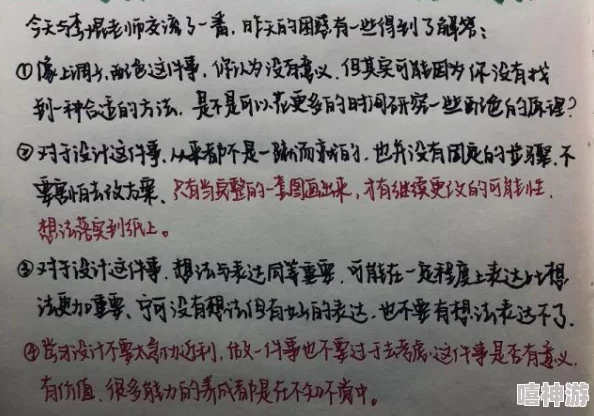 今天与李焜老师交流了一番,昨天的困惑有一些得到了解答:
①像上调子,配色这件事,你认为没有意义,但其实可能因为你没有找
到一种合适的方法,是不是可以花更多的时间研究一些配色的原理?
②对于设计这件事,从来都不是一蹴而就的,也并没有固定的步骤,不
要害怕去改方案,只有当完整的一套图画出来,才有继续更改的可能性,
想法落实到纸上。
③对于设计这件事,想法与表达同等重要,可能在一定程度上表达比想
法更加重要,宁可没有想法但有好的表达,也不要有想法表达不了.
④学习设计不要太急功近利,做一件事也不要过于去考虑这件事是否有意义,
有价值,很多能力的养成都是在不知不觉中。
嘻神游